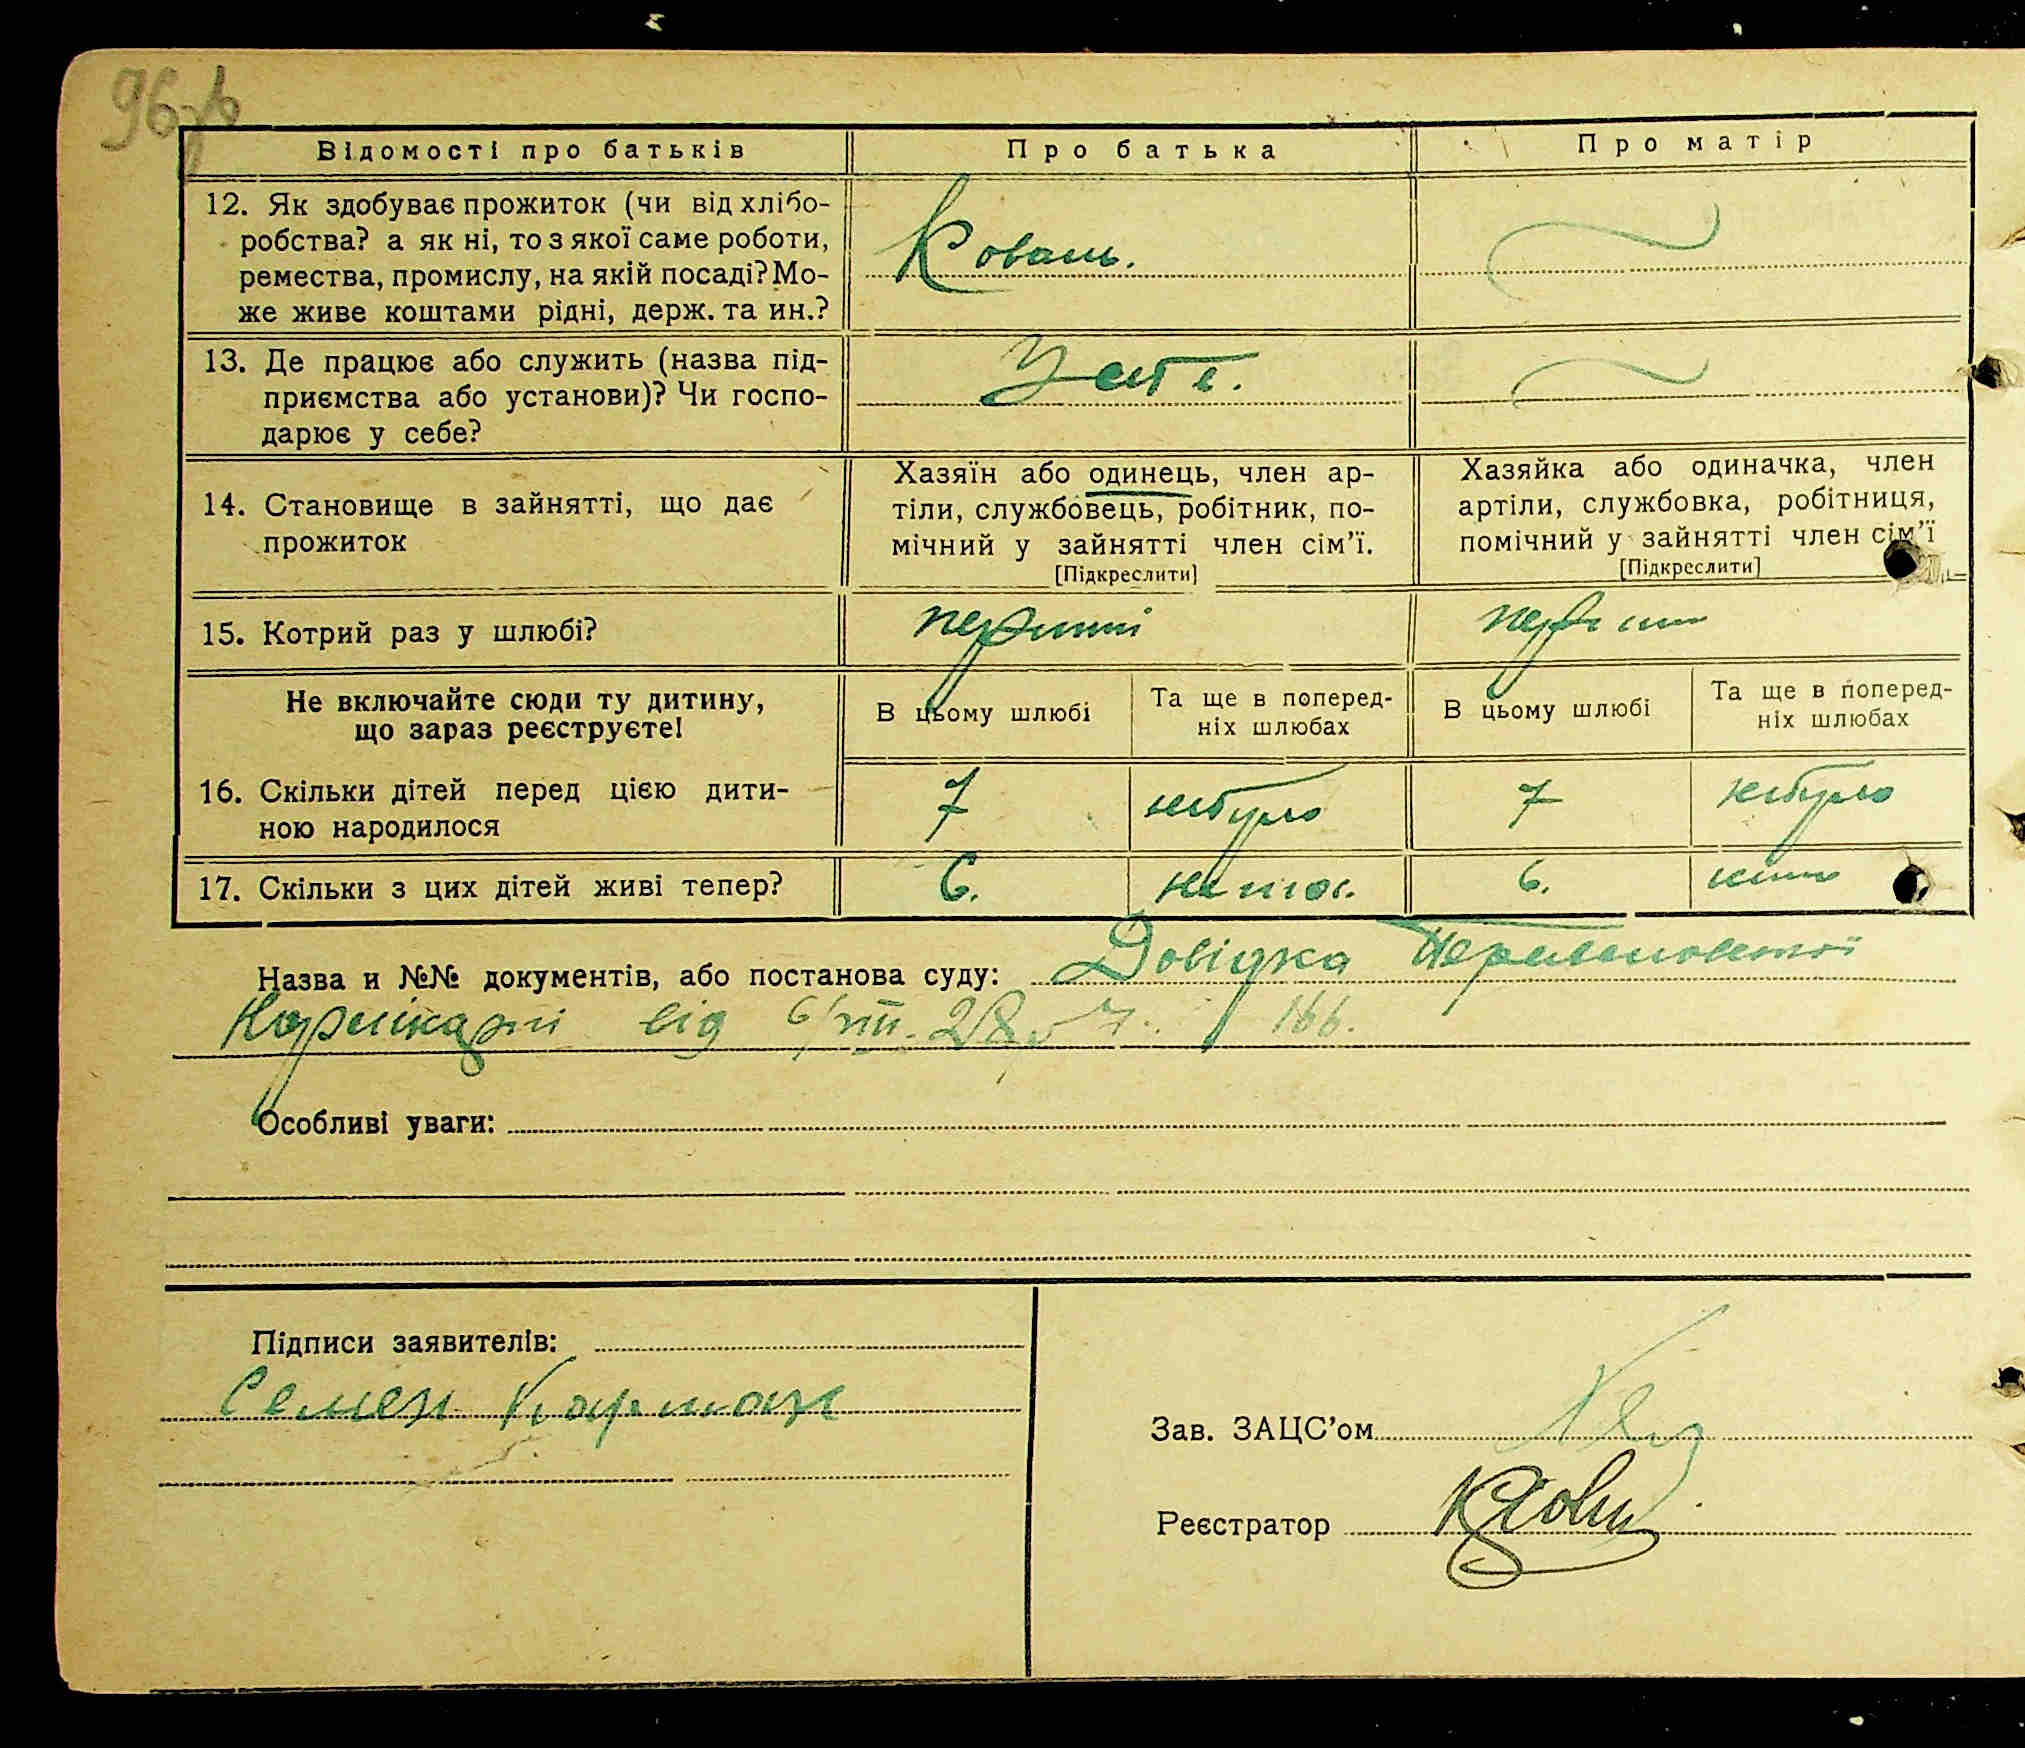 Відомості про батьків
Про батька
Про матір
12. Як здобуває прожиток (чи від хлібо-
робства? а як ні, то з якої саме роботи,
ремества, промислу, на якій посаді? Мо-
же живе коштами рідні, держ. та ин.?
Коваль.
13. Де працює або служить (назва під-
приємства або установи)? Чи госпо-
дарює у себе?
У себе.
14. Становище в зайнятті, що дає
прожиток
Хазяїн або одинець, член ар-
тіли, службовець, робітник, по-
мічний у зайнятті член сім'ї.
[Підкреслити]
Хазяйка або одиначка, член
артіли, службовка, робітниця,
помічний у зайнятті член сім'ї
[Підкреслити]
15. Котрий раз у шлюбі?
перший
перший
Не включайте сюди ту дитину,
що зараз реєструєте!
В цьому шлюбі
Та ще в поперед-
ніх шлюбах
В цьому шлюбі
Та ще в поперед-
ніх шлюбах
16. Скільки дітей перед цією дити-
ною народилося
7
небуло
7
небуло
17. Скільки з цих дітей живі тепер?
6.
нема.
6.
нема
Назва и №№ документів, або постанова суду: Довідка
від 6/VIII. 28 166.
Особливі уваги:
Підписи заявителів:
Семен
Зав. ЗАЦС'ом
Реєстратор